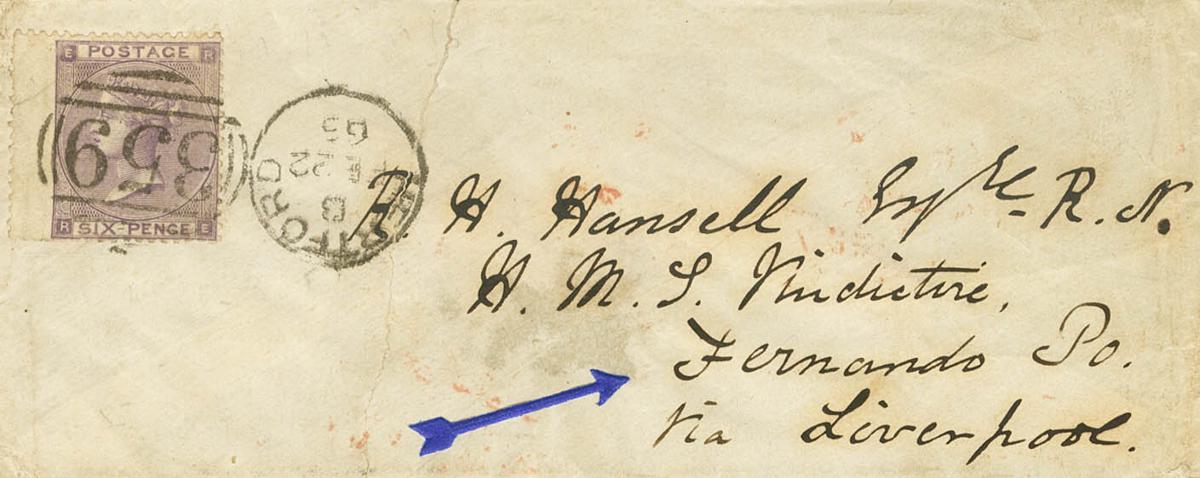 E POSTAGE R
R SIX-PENCE E
359
HERTFORD
B
FE 22
65
R. H. Hansell Esqre R. N.
H. M. S. Vindictive,
Fernando Po.
Via Liverpool.